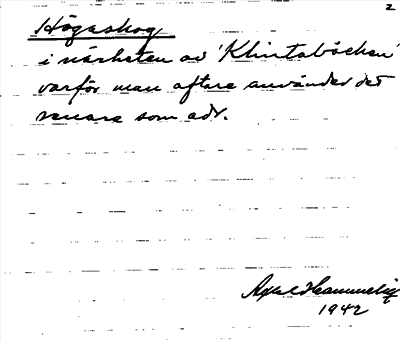 2
Högaskog
i närheten av 'Klintabäcken'
varför man oftare använder det
senare som adr.
Axel
1942